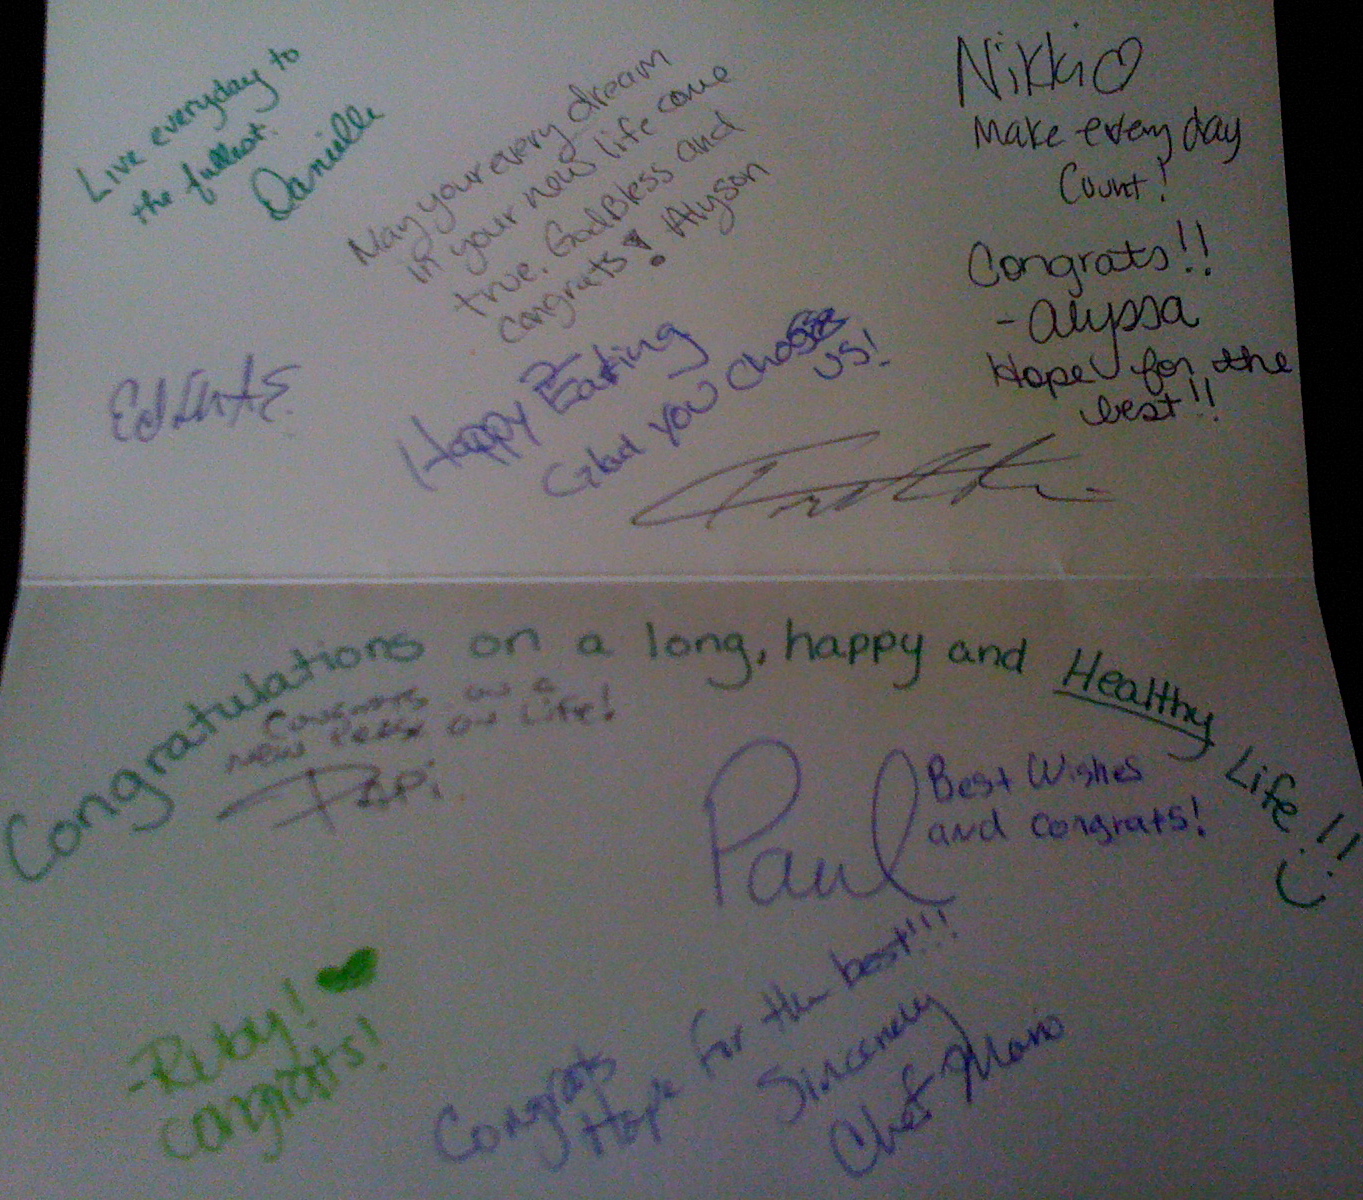 Live everyday to
the fullest.
Danielle
May your every dream
in your new life come
true. God Bless and
congrats! Alyson
Nikki
Make every day
Count!
Congrats!!
- Alyssa
Hope for the
best!!
Happy Eating
Glad you choose
us!
Congratulations on a long, happy and Healthy Life!!
Congrats on a
New on Life!
Papi
Paul
Best Wishes
and congrats!
-Ruby!
congrats!
Congrats
Hope for the best!!!
Sincerely
Chef Mario